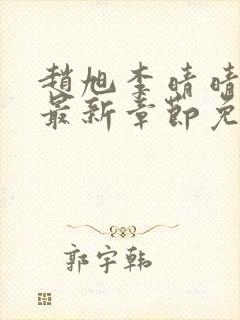 趙旭李晴晴
最新章節免
郭宇韩